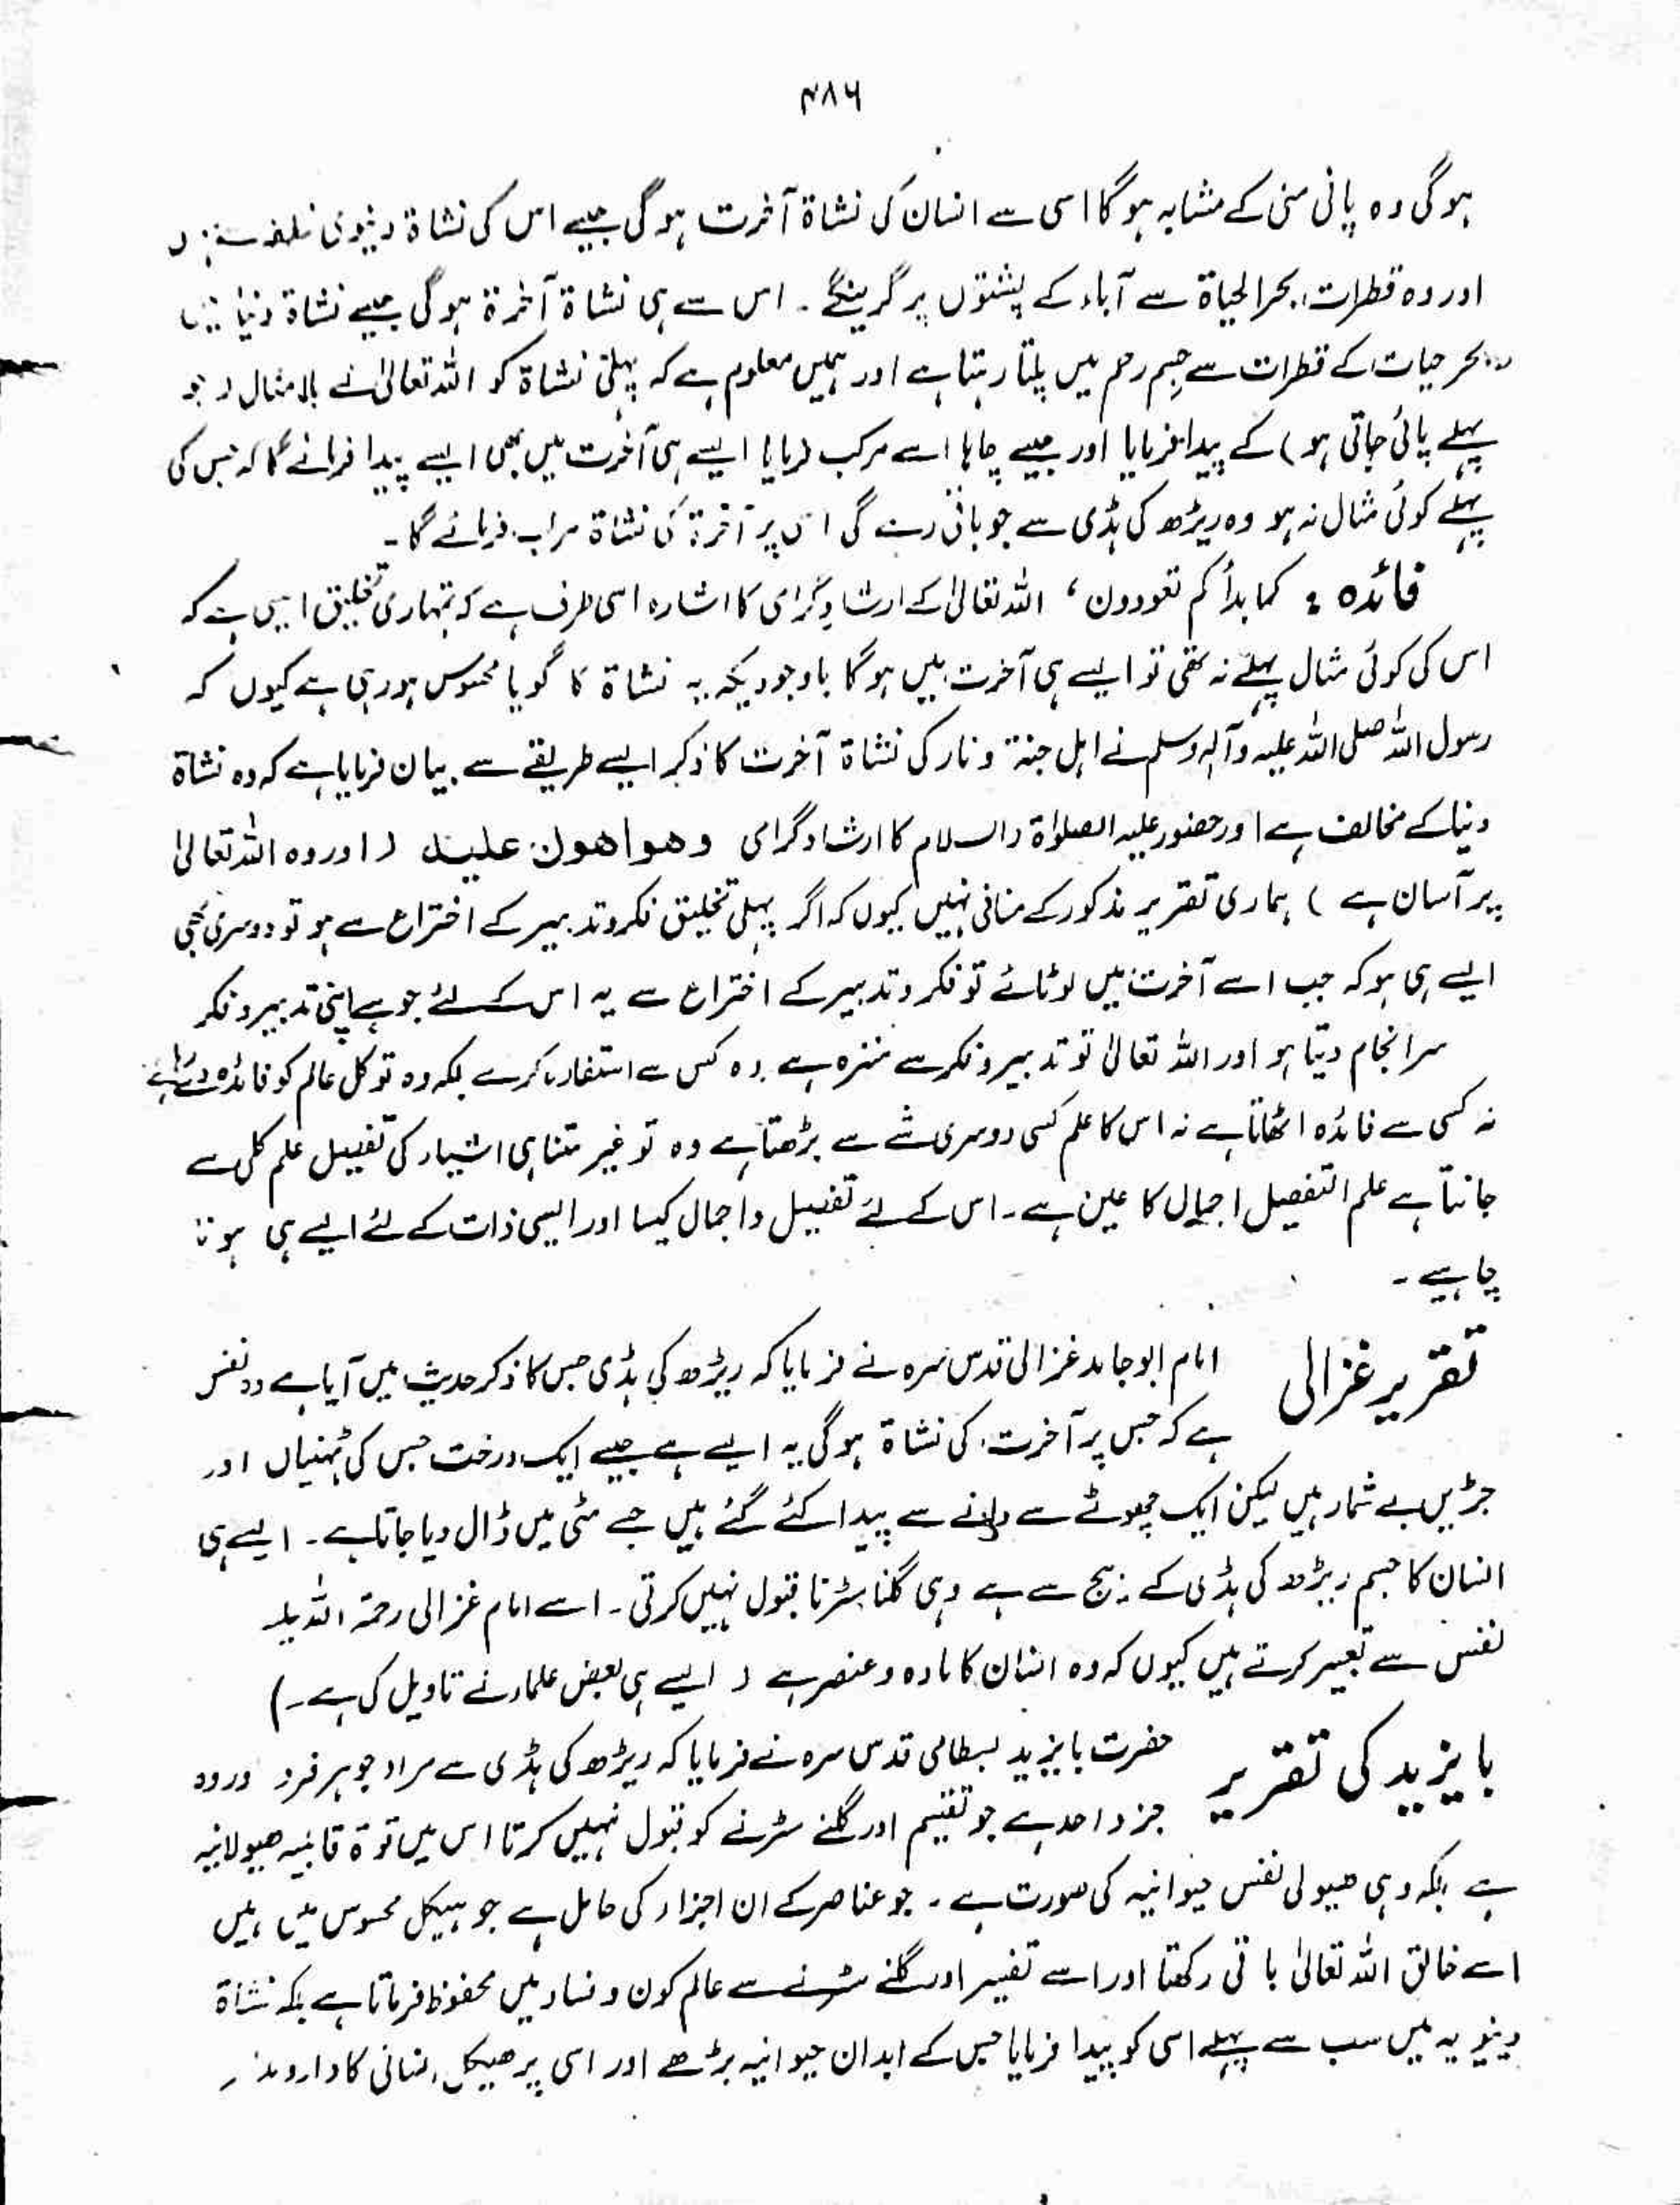 ۴۸۶
ہوگی وہ پانی منی کے مشابہ ہوگا اسی سے انسان کی نشاۃ آخرت ہوگی جیسے اس کی نشاۃ دنیوی
اور وہ قطرات بحر الحیاۃ سے آباء کے پشتوں پر گرینگے ۔ اس سے ہی نشاۃ آخرۃ ہوگی جیسے نشاۃ دنیا میں
بحر حیات کے قطرات سے جسم رحم میں پلتا رہتا ہے اور ہمیں معلوم ہے کہ پہلی نشاۃ کو اللہ تعالیٰ نے بلا مثال ( جو
پہلے پائی جاتی ہو ) کے پیدا فرمایا اور جیسے چاہا اسے مرکب فرمایا ایسے ہی آخرت میں بھی ایسے پیدا فرمائے گا کہ جس کی
پہلے کوئی مثال نہ ہو وہ ریڑھ کی ہڈی سے جو باقی رہے گی اس پر آخرۃ کی نشاۃ مراب فرمائے گا ۔
فائدہ : کما بدأکم تعودون ، اللہ تعالیٰ کے ارشاد گرامی کا اشارہ اسی طرف ہے کہ تمہاری تخلیق ایسی ہے کہ
اس کی کوئی مثال پہلے نہ تھی تو ایسے ہی آخرت میں ہوگا باوجودیکہ یہ نشاۃ کا گویا محسوس ہورہی ہے کیوں کہ
رسول اللہ صلی اللہ علیہ وآلہ وسلم نے اہل جنۃ و نار کی نشاۃ آخرت کا ذکر ایسے طریقے سے بیان فرمایا ہے کہ وہ نشاۃ
دنیا کے مخالف ہے اور حضور علیہ الصلوٰۃ والسلام کا ارشاد گرامی وھو اھون علیہ ( اور وہ اللہ تعالیٰ
پر آسان ہے ) ہماری تقریر مذکور کے منافی نہیں کیوں کہ اگر پہلی تخلیق فکر و تدبیر کے اختراع سے ہو تو دوسری بھی
ایسے ہی ہو کہ جب اسے آخرت میں لوٹائے تو فکر و تدبیر کے اختراع سے یہ اس کے لئے جو ہے اپنی تدبیر و فکر
سرانجام دیتا ہو اور اللہ تعالیٰ تو تدبیر و فکر سے منزہ ہے وہ کس سے استفادہ کرے بلکہ وہ تو کل عالم کو فائدہ
نہ کسی سے فائدہ اٹھاتا ہے نہ اس کا علم کسی دوسری شے سے بڑھتا ہے وہ تو غیر متناہی اشیاء کی تفصیل علم کل سے
جانتا ہے علم التفصیل اجمال کا عین ہے ۔ اس کے لئے تفصیل و اجمال کیسا اور ایسی ذات کے لئے ایسے ہی ہونا
چاہیے ۔
تقریر غزالی امام ابو حامد غزالی قدس سرہ نے فرمایا کہ ریڑھ کی ہڈی جس کا ذکر حدیث میں آیا ہے وہ نفس
ہے کہ جس پر آخرت کی نشاۃ ہوگی یہ ایسے ہے جیسے ایک درخت جس کی ٹہنیاں اور
جڑیں بے شمار ہیں لیکن ایک چھوٹے سے دانے سے پیدا کئے گئے ہیں جسے مٹی میں ڈال دیا جاتا ہے ۔ ایسے ہی
انسان کا جسم ریڑھ کی ہڈی کے بیج سے ہے وہی گلنا سڑنا قبول نہیں کرتی ۔ اسے امام غزالی رحمۃ اللہ علیہ
نفس سے تعبیر کرتے ہیں کیوں کہ وہ انسان کا مادہ و عنصر ہے ( ایسے ہی بعض علماء نے تاویل کی ہے ۔ )
بایزید کی تقریر حضرت بایزید بسطامی قدس سرہ نے فرمایا کہ ریڑھ کی ہڈی سے مراد جوہر فرد اور وہ
جزو احد ہے جو تقسیم اور گلنے سڑنے کو قبول نہیں کرتا اس میں قوۃ قابلیہ ھیولانیہ
ہے بلکہ وہی ھیولی نفس حیوانیہ کی صورت ہے ۔ جو عناصر کے ان اجزاء کی حامل ہے جو ہیکل محسوس میں ہیں
اسے خالق اللہ تعالیٰ باقی رکھتا اور اسے تغییر اور گلنے سڑنے سے عالم کون و فساد میں محفوظ فرماتا ہے بلکہ نشاۃ
دنیویہ میں سب سے پہلے اسی کو پیدا فرمایا جس کے ابدان حیوانیہ بڑھے اور اسی پر ھیکل انسانی کا دارومدار